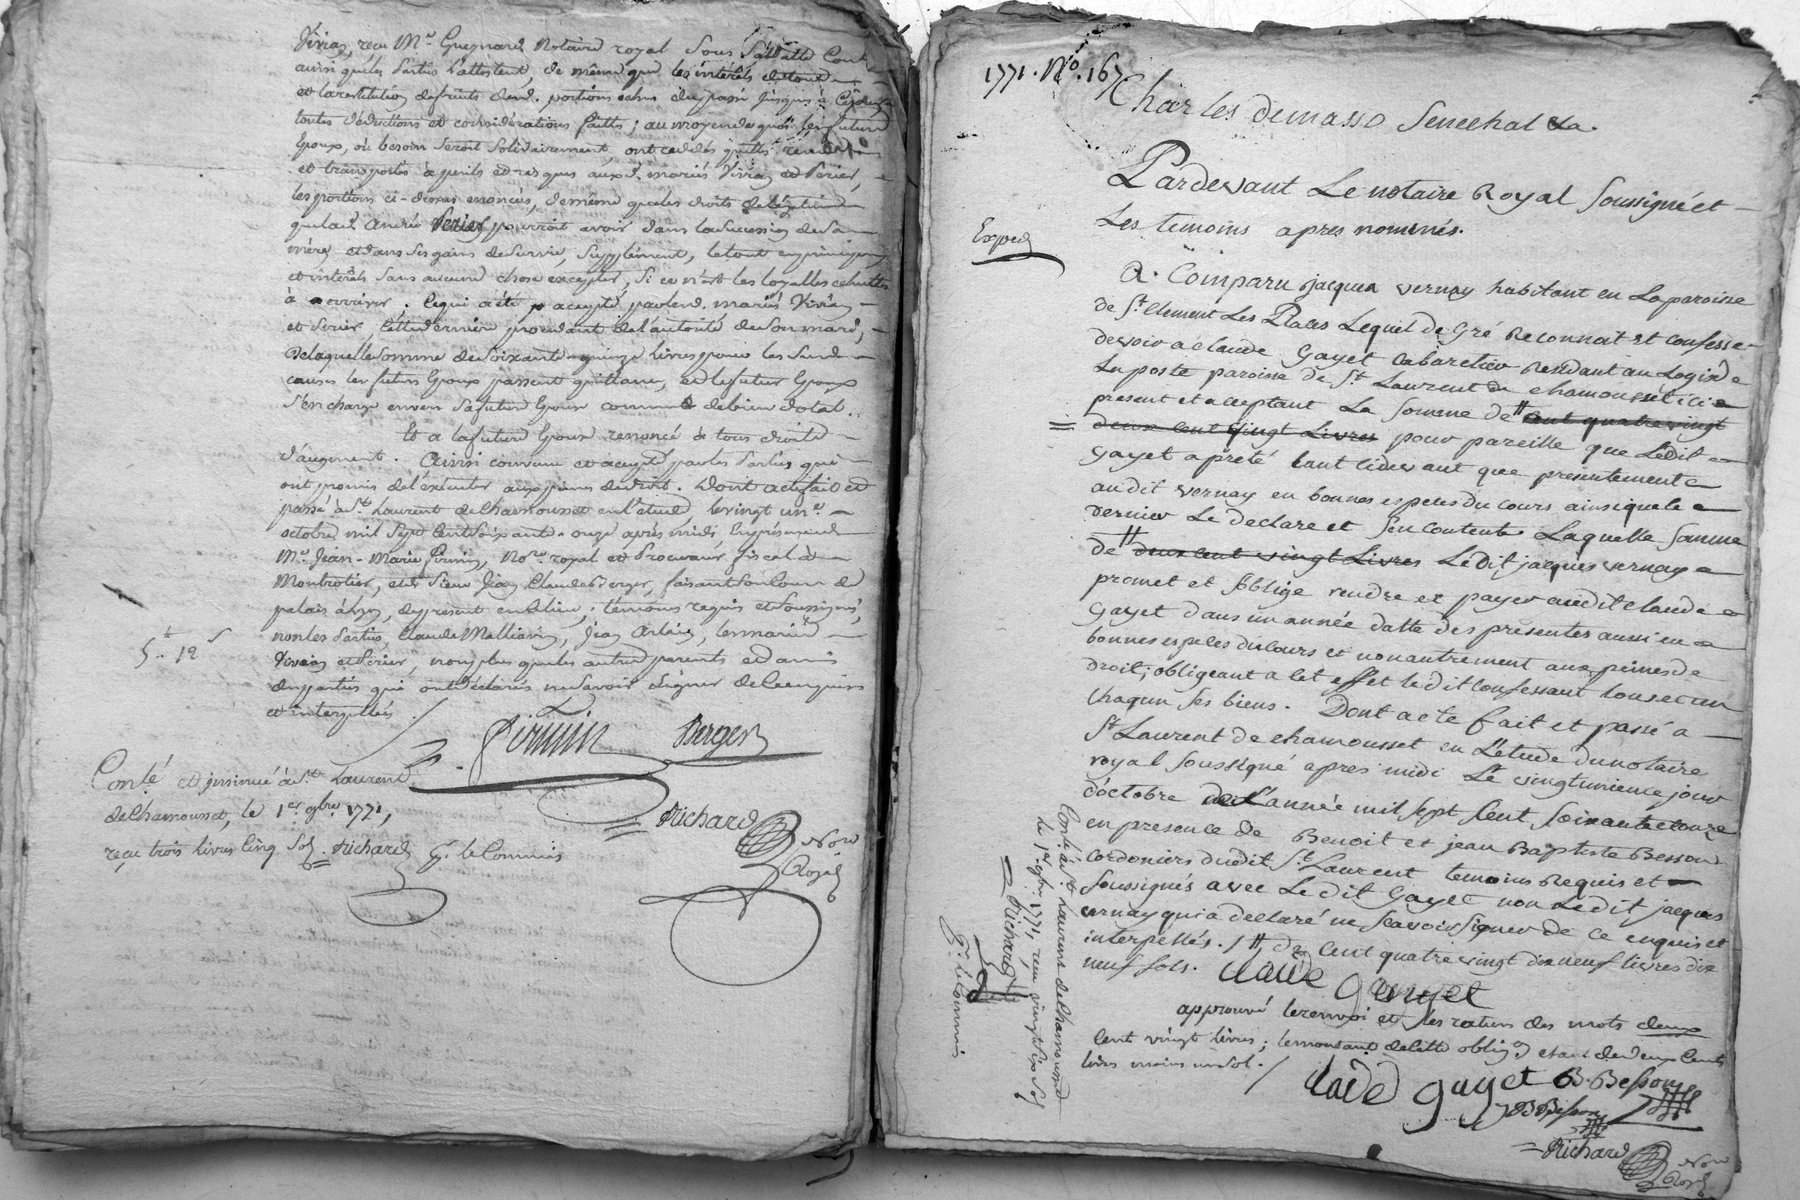 Vivian, reçu Me Guignard Notaire royal sous sa datte
ainsi que les Parties l'attestent, de même que les intérêts
et la restitution des fruits desd. portions échus du passé jusques à
toutes déductions et considérations faittes; au moyen de quoi les futurs
Epoux, où besoin seroit solidairement, ont cédés quittés
et transportés à perils et risques auxd. mariés Vivian et Perier,
les portions ci-dessus enoncées, de même que les droits de légitime
que led. André Perier pourroit avoir dans la succession de sa
mère, et dans ses gains de survie, supplément, le tout en principaux
et intérêts sans aucune chose excepter, si ce n'est les loyalles echuttes
à arriver. Ce qui a été accepté par lesd. mariés Vivian
et Perier, cette dernière procédant de l'autorité de son mary,
De laquelle somme de soixante quinze livres pour les susd.
causes les futurs Epoux passent quittance, et le futur Epoux
s'en charge envers sa future Epouse comme de bien dotal.
Et a la future Epouse renoncé à tous droits
d'augment. Ainsi convenu et accepté par les Parties qui
ont promis de l'exécuter aux peines de droit. Dont acte fait et
passé à St. Laurent de Chamousset en l'étude le vingt un
octobre mil sept cent soixante onze après midi, en présence de
Me. Jean-Marie Pirmin, Nore. royal et Procureur fiscal de
Montrotier, et de Sieur Jean Claude Berger, faisant son cours de
palais à Lyon, de présent en ce lieu, témoins requis et soussignés,
non les Parties, Claude Milliavin, Jean Arlain, les mariés
Vivian et Perier, non plus que les autres parents et amis
des parties qui ont déclarés ne savoir signer de ce enquis
et interpellés.
5tt 12 s
Pirmin Berger
Conlé et insinué à St. Laurent
de Chamousset, le 1er. 9bre 1771,
reçu trois livres cinq sol. Richard p. le Commis
Richard Nore
Royal
1771. No. 167
Charles demasso Senechal &a.
Pardevant Le notaire Royal Soussigné et
Les temoins apres nommés.
Exped
A. Comparu jacques vernay habitant en La paroisse
de St. Clement Les Places Lequel de Gré Reconnoit et confesse
devoir a claude Gayet Cabaretier Residant au Logis de
La poste paroisse de St. Laurent de chamousset ici
present et acceptant La Somme de # cent quatre vingt
deux cent vingt Livres pour pareille que Ledit
gayet a prêté tant cidevant que presentement
audit vernay en bonnes especes du cours ainsi que le
dernier Le declare et s'en contente Laquelle somme
de # deux cent vingt Livres Ledit jacques vernay
promet et s'oblige rendre et payer audit claude
Gayet dans un année datte des presentes aussi en
bonnes especes du cours et non autrement aux peines de
droit, obligeant a cet effet ledit confessant tous et un
chaqun ses biens. Dont acte fait et passé a
St. Laurent de chamousset en L'etude du notaire
royal soussigné apres midi Le vingtunieme jour
d'octobre de L'année mil sept cent soixante et onze
en presence de Benoit et jean Baptiste Besson
cordoniers dudit St. Laurent temoins Requis et
Soussignés avec Le dit Gayet non Le dit jacques
vernay qui a declaré ne scavoir signer de ce enquis et
interpellés. / # de cent quatre vingt dix neuf livres dix
neuf sols.
Claude gayet
approuvé le renvoi et les ratures des mots deux
cent vingt livres; le montant de lad. oblig. étant de deux cents
livres moins un sol. /
Claude gayet B. Besson
JB Besson
Richard Nore
Royal
Conlé à St. Laurent de Chamousset
le 1er. 9bre. 1771, reçu vingt six sol
Richard
p. le Commis